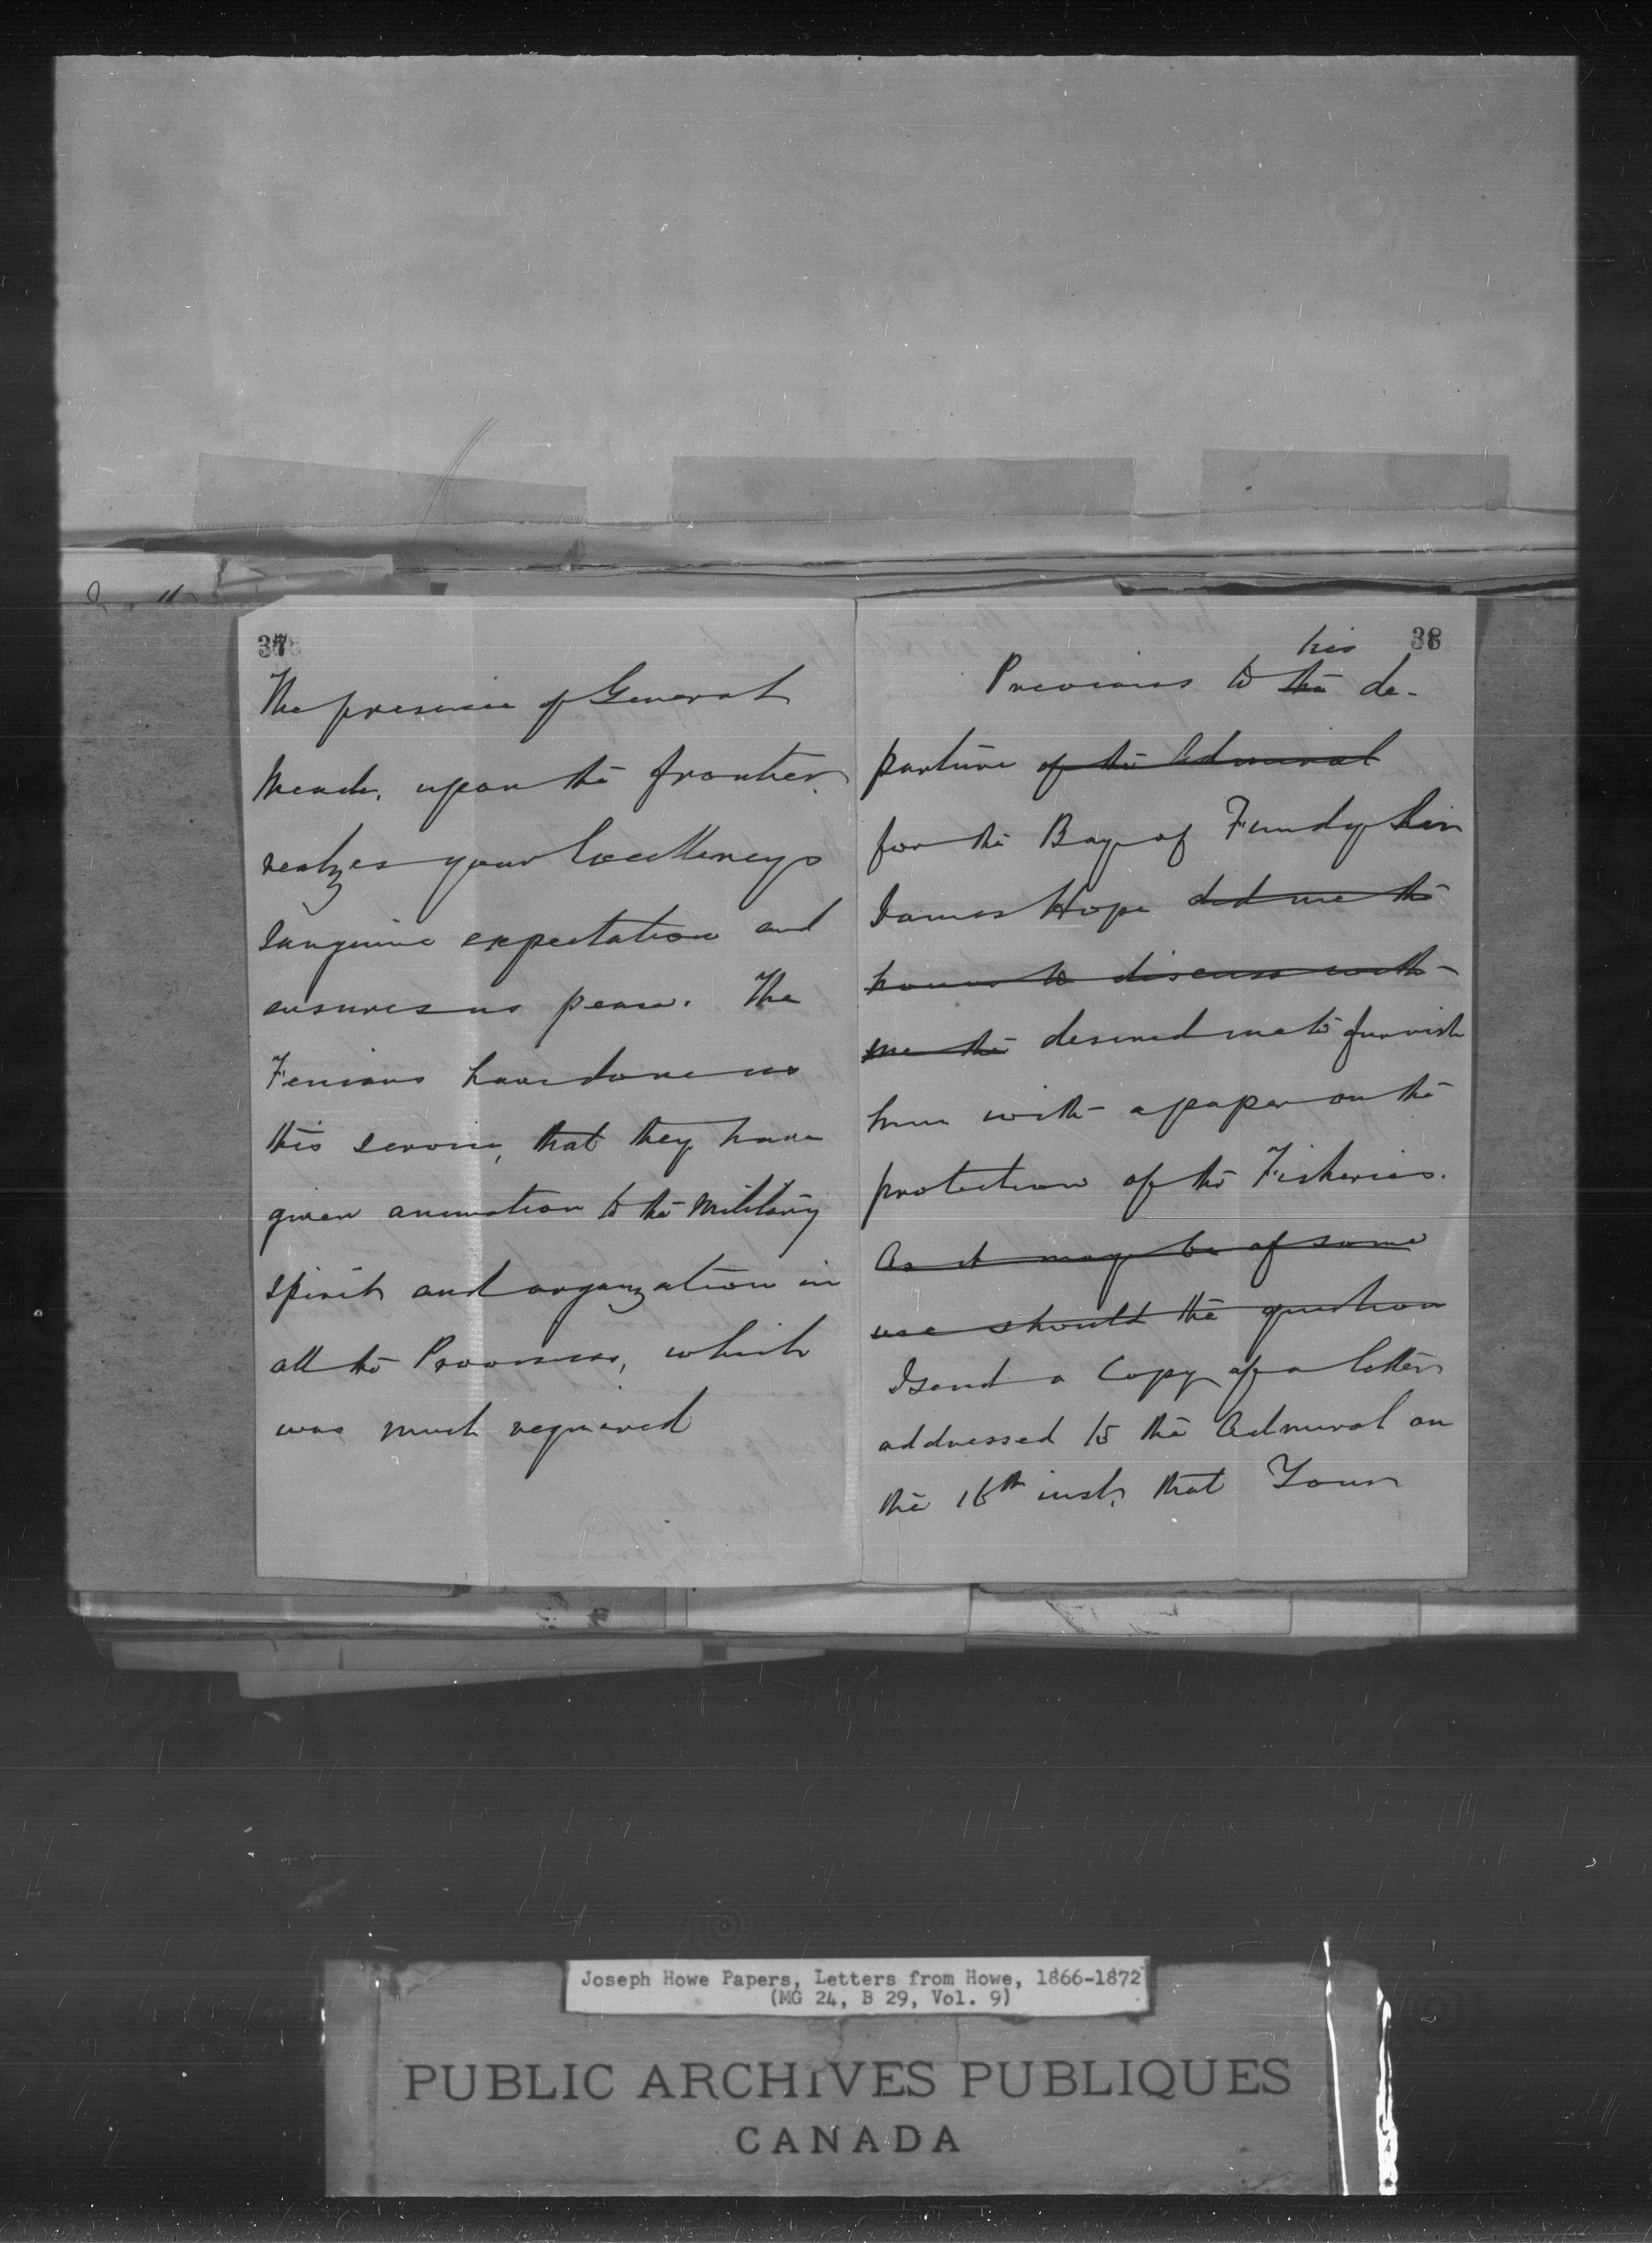 37
The presence of General
Meade, upon the frontier,
realizes your Excellency's
sanguine expectation and
ensures us peace. The
Fenians have done us
this service, that they have
given animation to the Military
spirit and organization in
all the Provinces, which
was much required
38
his
Previous to the de-
parture of the Admiral
for the Bay of Fundy Sir
James Hope did me the
honor to discuss with
me the desired me to furnish
him with a paper on the
protection of the Fisheries.
As it may be of some
use should the question
I send a Copy of a letter
addressed to the Admiral on
the 16th inst, that Your
Joseph Howe Papers, Letters from Howe, 1866-1872
(MG 24, B 29, Vol. 9)
PUBLIC ARCHIVES PUBLIQUES
CANADA